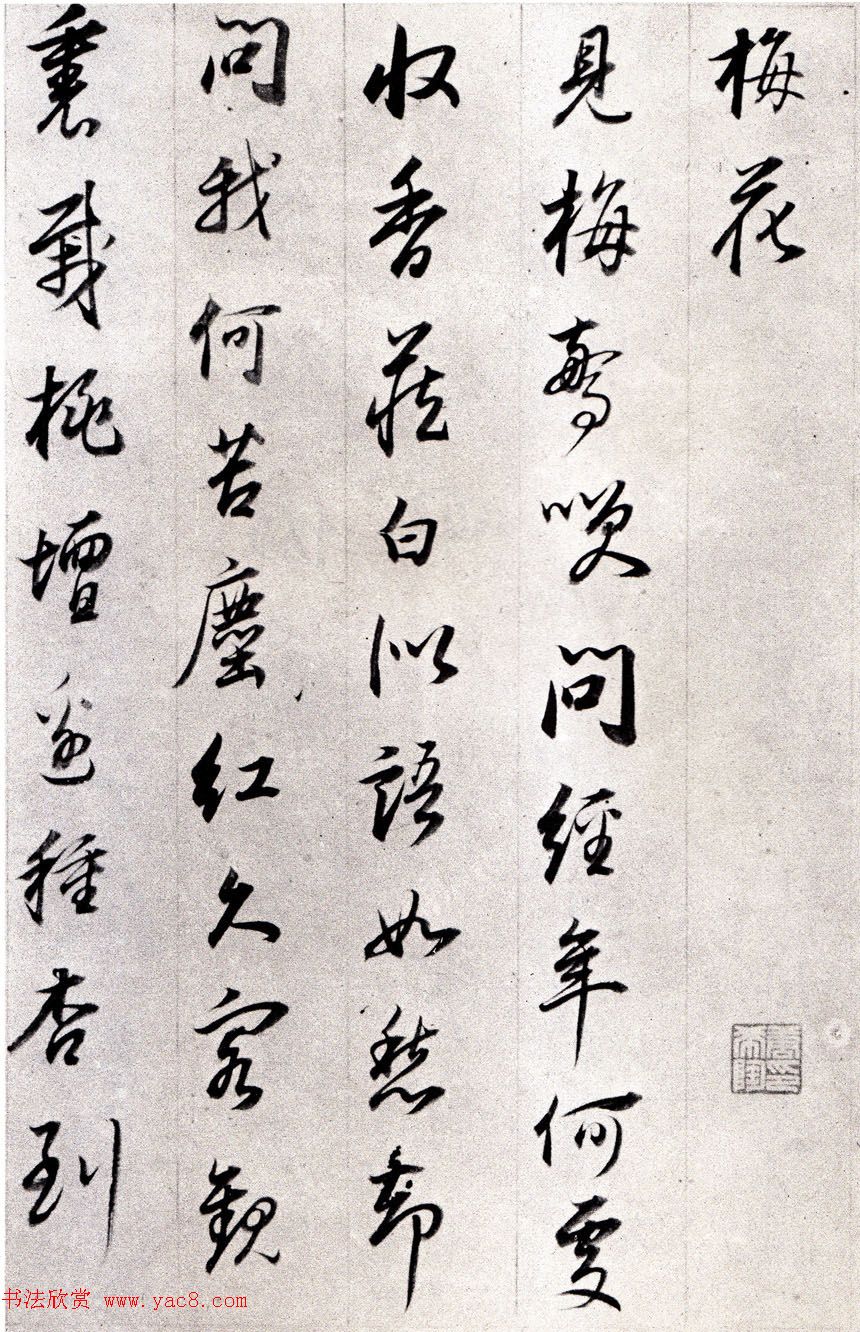 梅花
見梅驚笑問經年何處
收香藏白似語如愁卻
問我何苦塵紅久客觀
裏栽桃壇邊種杏到
书法欣赏 www.yac8.com